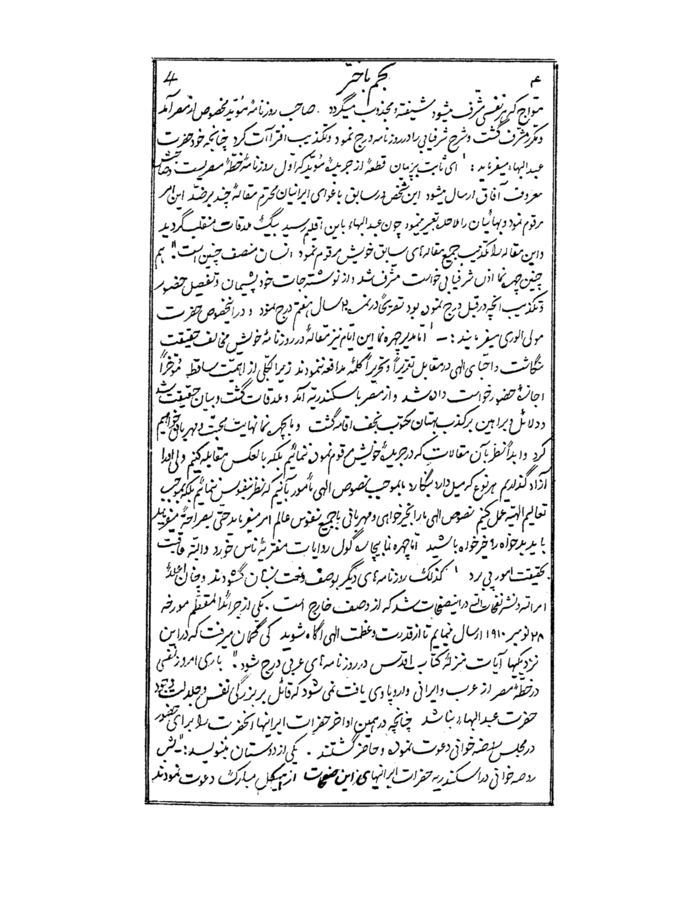 ۴ نجم باختر 4
مواج کل نفسی مشرف میشود شیفته و مجذوب میگردد . صاحب روزنامهٔ مؤید مخصوص از مصر آمد
و مکرر مشرف گشت و شرح شرفیابی را در روزنامه درج نمود و تکذیب افتراآت کرد چنانچه خود حضرت
عبدالبهاء میفرماید : ای ثابت بر پیمان قطعهٔ از جریدهٔ مؤید که اول روزنامهٔ خطهٔ مصر است
معروف آفاق ارسال میشود این شخص در سابق باغوای ایرانیان محترم مقالهٔ چند بر ضد این امر
مرقوم نمود و بهائیان را تعبیر نمود چون عبدالبهاء باین اقلیم رسید بیک ملاقات منقلب گردید
و این مقاله را تکذیب جمیع مقاله‌های سابق خویش مرقوم نمود انسان منصف چنین است" هم
چنین چهره نما اذن شرفیابی خواست مشرف شد و از نوشته‌جات خود پشیمان و تفصیل حضور
و تکذیب آنچه در قبل درج نموده بود سال هفتم درج نمود و در اینخصوص حضرت
مولی الوری میفرمایند :ـ اما مدیر چهره نما این ایام نیز مقالهٔ در روزنامهٔ خویش مخالف حقیقت
نگاشت و احبای الهی در مقابل تقریراً و تحریراً کلمهٔ مدافعه ننمودند زیرا بکلی از اهمیت ساقط
اجازهٔ حضور خواست داده شد و از مصر باسکندریه آمد و ملاقات گشت و بیان حقیقت شد
و دلائل و براهین بر کذب بهتان مکتوب نجف اقامه گشت و با چهره نما نهایت محبت و مهربانی خواهیم
کرد و ابداً نظر بآن مقالات که در جریدهٔ خویش مرقوم نموده ننمائیم بلکه بالعکس مقابله کنیم و او را
آزاد گذاریم هر نوع که میل دارد بنگارد ما بموجب نصوص الهی مأمور بآنیم که نظر بنفوس ننمائیم بلکه بموجب
تعالیم الهیه عمل کنیم نصوص الهی ما را بخیرخواهی و مهربانی با جمیع نفوس عالم امر میفرماید حتی بصراحت میفرماید
با بدید بدخواه را خیرخواه باشید اما چهره نما بیچاره گول روایات مفتریهٔ ناس خورد و البته عاقبت
بحقیقت امور پی برد ' کذلک روزنامه‌های دیگر بوصف و نعت لسان گشودند و چنان
امرالله و نشر نفحات الله در اینصفحات شد که از وصف خارج است . یکی از جرائد المقطم مورخه
۲۸ نومبر ۱۹۱۰ ارسال نمایم تا از قدرت و عظمت الهی آگاه شوید کی گمان میرفت که در این
نزدیکیها آیات منزلهٔ کتاب اقدس در روزنامه‌های عربی درج شود ". باری امروز نفسی
در خطهٔ مصر از عرب و ایرانی و اروپاوی یافت نمی شود که قائل بر بزرگی نفس و جلالت
حضرت عبدالبهاء نباشد چنانچه در همین اواخر حضرات ایرانیها آنحضرت را برای حضور
در مجلس روضه خوانی دعوت نموده و حاضر گشتند . یکی از دوستان مینویسد :"
روضه خوانی در اسکندریه حضرات ایرانیهای این صفحات از هیکل مبارک دعوت نمودند